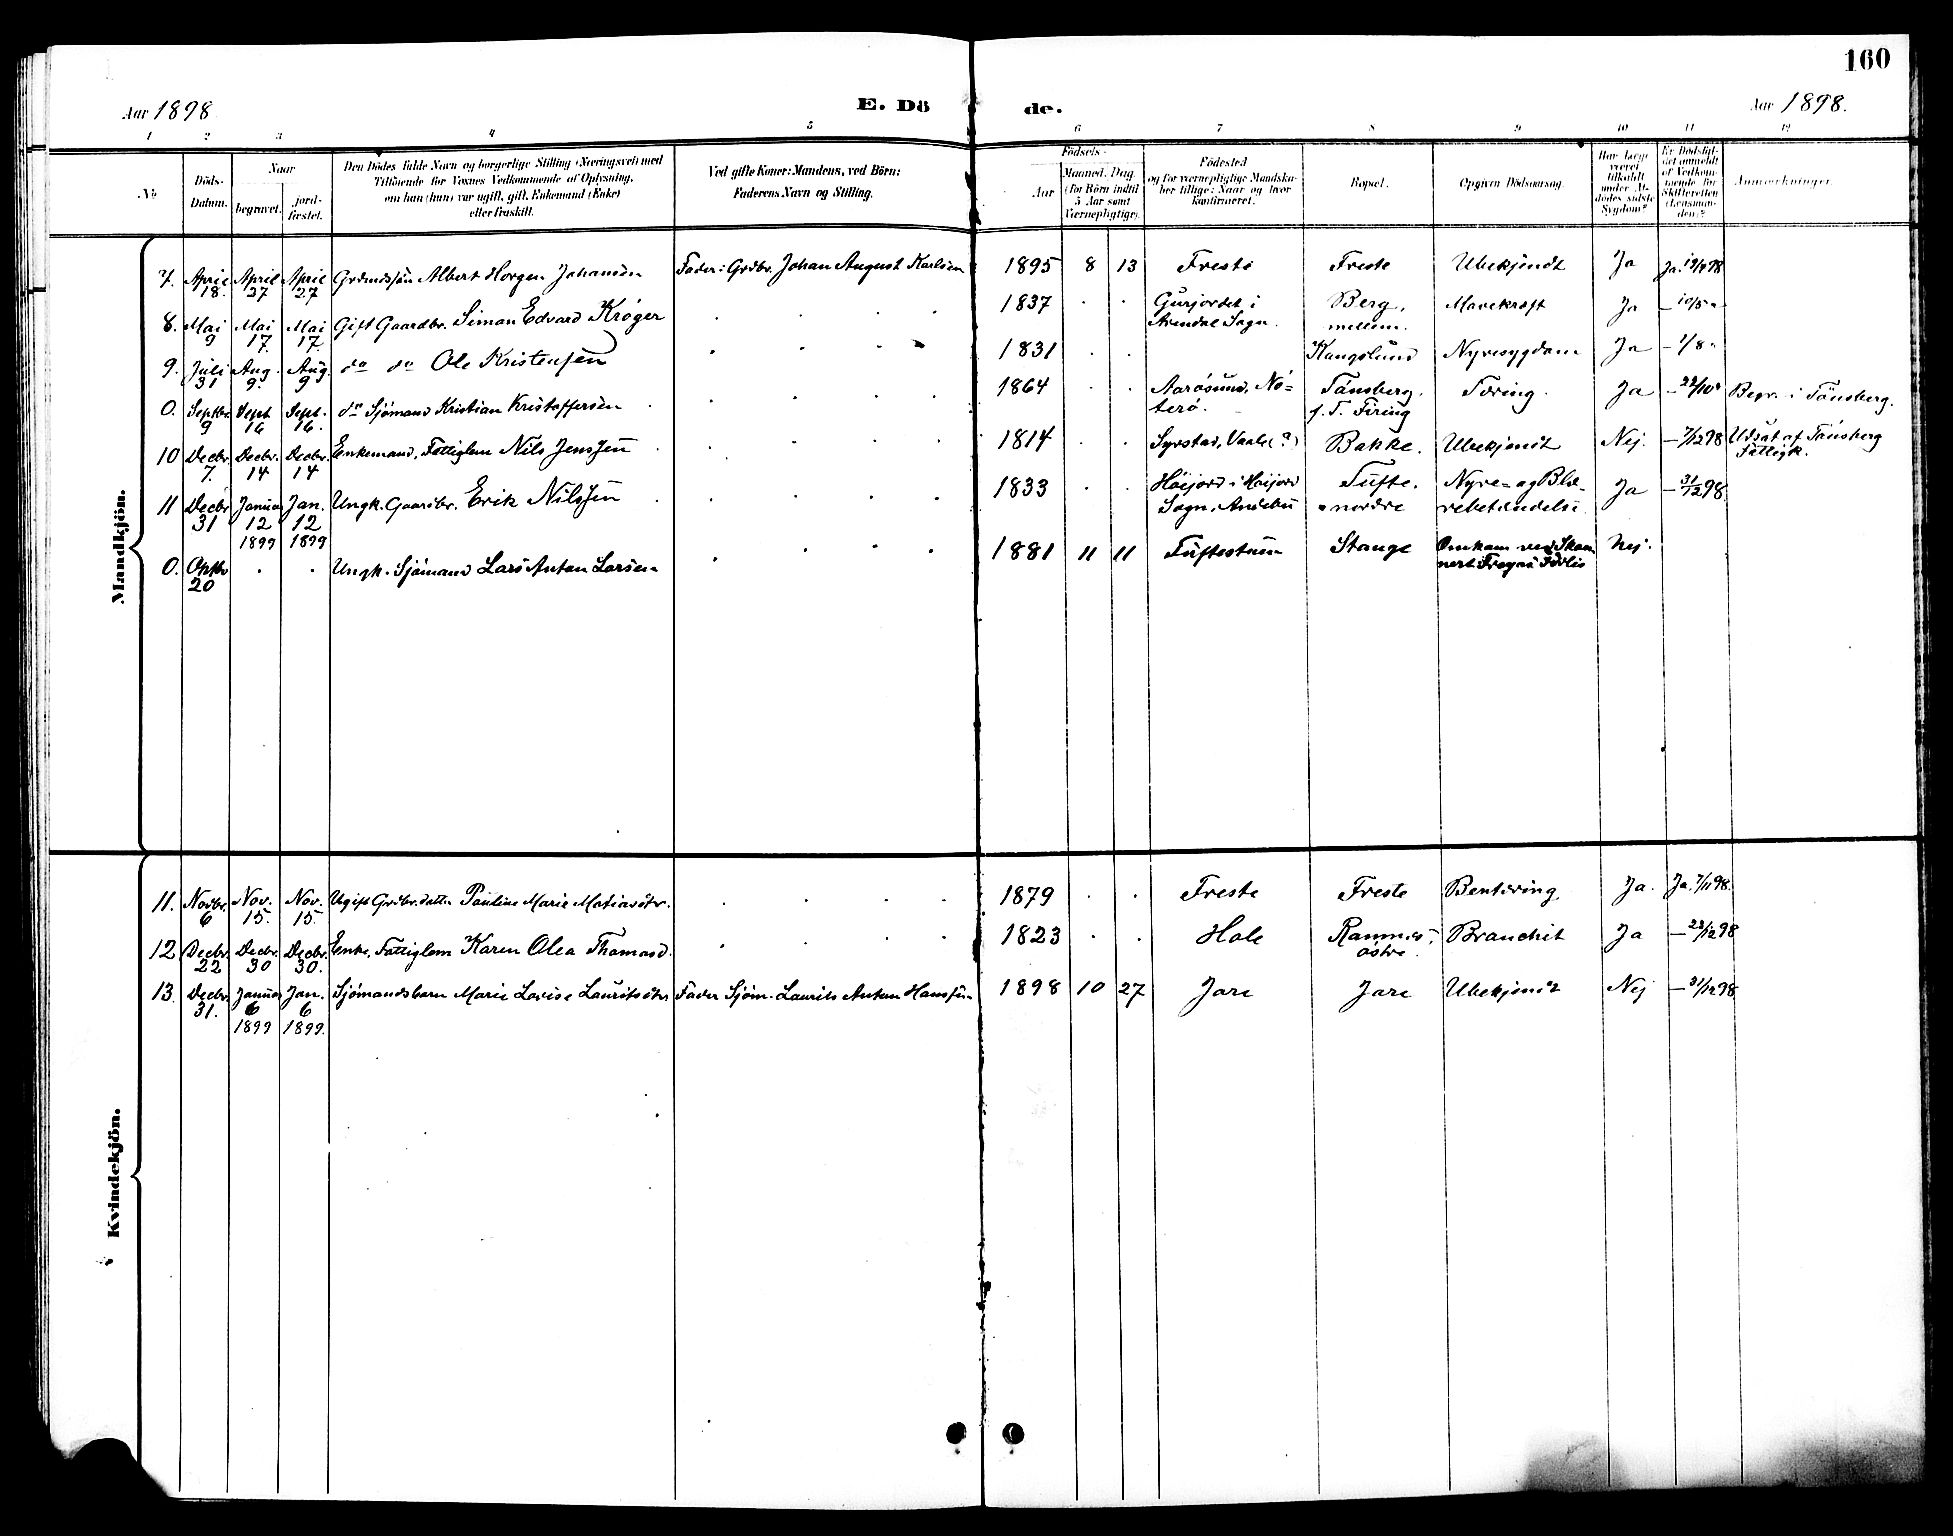 160
Aar 1898
E. Dö
de.
Aar 1898.
1 2 3 4 5 6 7 8 9 10 11 12
No
Döds-
Datum.
Naar
begravet.
jord-
fæstet.
Den Dödes fulde Navn og borgerlige Stilling (Næringsvei) med
Tilföiende for Voxnes Vedkommende af Oplysning,
om han (hun) var ugift, gift, Enkemand (Enke)
eller fraskilt.
Ved gifte Koner: Mandens, ved Börn:
Faderens Navn og Stilling.
Födsels-
Aar
Maaned. Dag.
(for Börn indtil
5 Aar samt
Værnepligtige).
Födested
og for værnepligtige Mandska-
ber tillige: Naar og hvor
konfirmeret.
Bopæl.
Opgiven Dödsaarsag.
Har Læge
været
tilkaldt
under Af-
dödes sidste
Sygdom?
Er Dödsfal-
det anmeldt
af Vedkom-
mende for
Skifteretten
(Lensman-
den)?
Anmærkninger.
Mandkjön.
7. April 18. April 27 April 27 Grdmdssön Albert Horgen Johansen Fader: Grdbr. Johan August Karlsen 1895 8 13 Freste Freste Ubekjendt Ja Ja. 19/4 98
8. Mai 9 Mai 17. Mai 17. Gift Gaardbr. Simon Edvard Kröger 1837 Gurjordet i Arendal Sogn. Berg, mellem. Mavekræft Ja – 10/5 "
9. Juli 31 Aug. 9. Aug. 9 do do Ole Kristensen 1831 Haugslund Nyresygdom Ja – 1/8 "
0. Septbr. 9 Sept 16 Sept. 16. do Sjömand Kristian Kristoffersen 1864 Aarösund, Nö- terö. Tönsberg. f. T. Firing Tæring. Ja – 22/10 " Begr. i Tönsberg.
10 Decbr. 7. Decbr. 14 Decbr. 14 Enkemand, Fattiglem Nils Jenssen 1814 Syrstad, Vaale (?) Bakke. Ubekjendt Nej. – 7/12 98 Udsat af Tönsberg Fattigk.
11 Decbr 31 Januar 12 1899 Jan. 12 1899 Ungk. Gaardbr. Erik Nilssen 1833 Höijord i Höijord Sogn, Andebu Tufte. nordre Nyre- og Blæ- rebetændelse Ja – 31/12 98
0. Oktbr 20 Ungk. Sjömand Lars Anton Larsen 1881 11 11 Tuftestuen Stange Omkom ved Skon- nert Freyas Forlis Nej.
Kvindekjön.
11. Novbr. 6 Nov. 15. Nov. 15. Ugift Grdbr. datter Pauline Marie Matiasdtr. 1879 Freste Freste Bentæring Ja. Ja. 7/11 98.
12 Decbr. 22 Decbr. 30 Decbr. 30. Enke, Fattiglem Karen Olea Thomasd. 1823 Hole Ramnes, östre. Bronchit Ja – 22/12 98
13. Decbr. 31. Januar 6 1899 Jan. 6 1899. Sjömandsbarn Marie Lovise Lauritsdtr Fader Sjöm. Laurits Anton Hanssen 1898 10 27 Jare Jare Ubekjendt Nej – 31/12 98